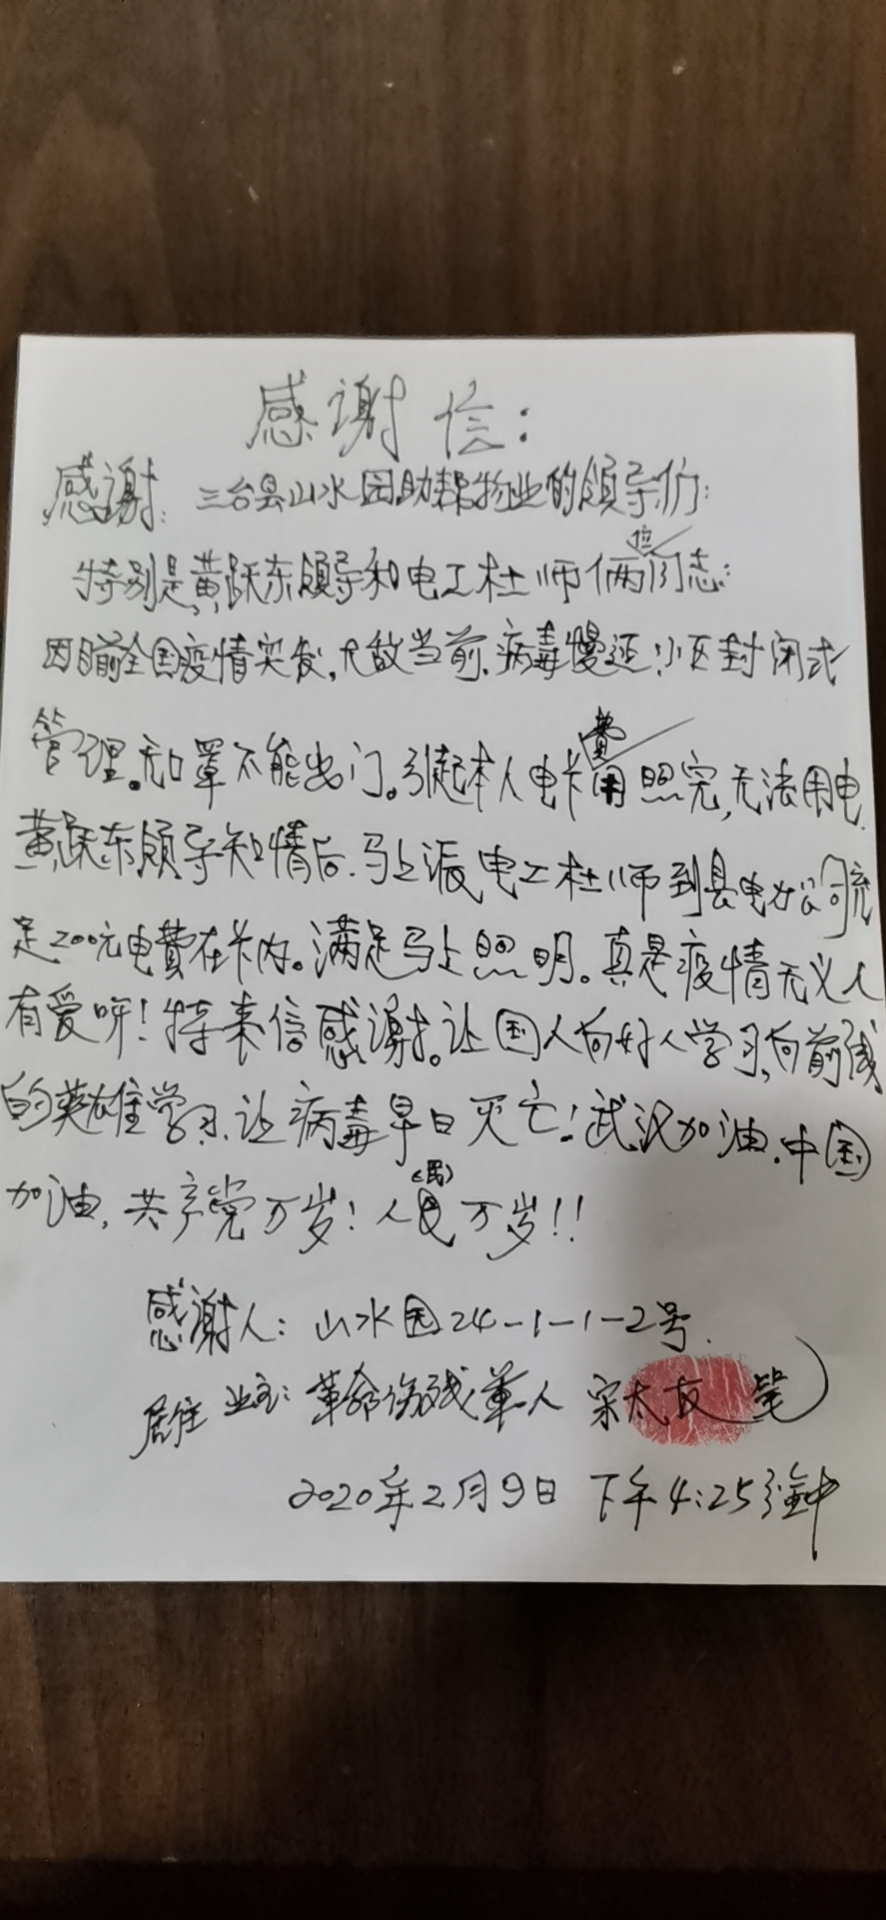 感谢信：
感谢：三台县山水园助帮物业的领导们：
特别是黄跃东领导和电工杜师俩位同志：
因目前全国疫情突发，大敌当前，病毒慢延！小区封闭式
管理。无口罩不能出门。引起本人电卡费用照完，无法用电，
黄跃东领导知情后，马上派电工杜师到县电力公司充
足200元电费在卡内。满足马上照明。真是疫情无义人
有爱呀！特来信感谢。让国人向好人学习，向前线
的英雄学习，让病毒早日灭亡！武汉加油，中国
加油，共产党万岁！人民（民）万岁！！
感谢人：山水园24-1-1-2号.
居住业主：革命伤残军人 宋太友 笔
2020年2月9日 下午4:25分钟